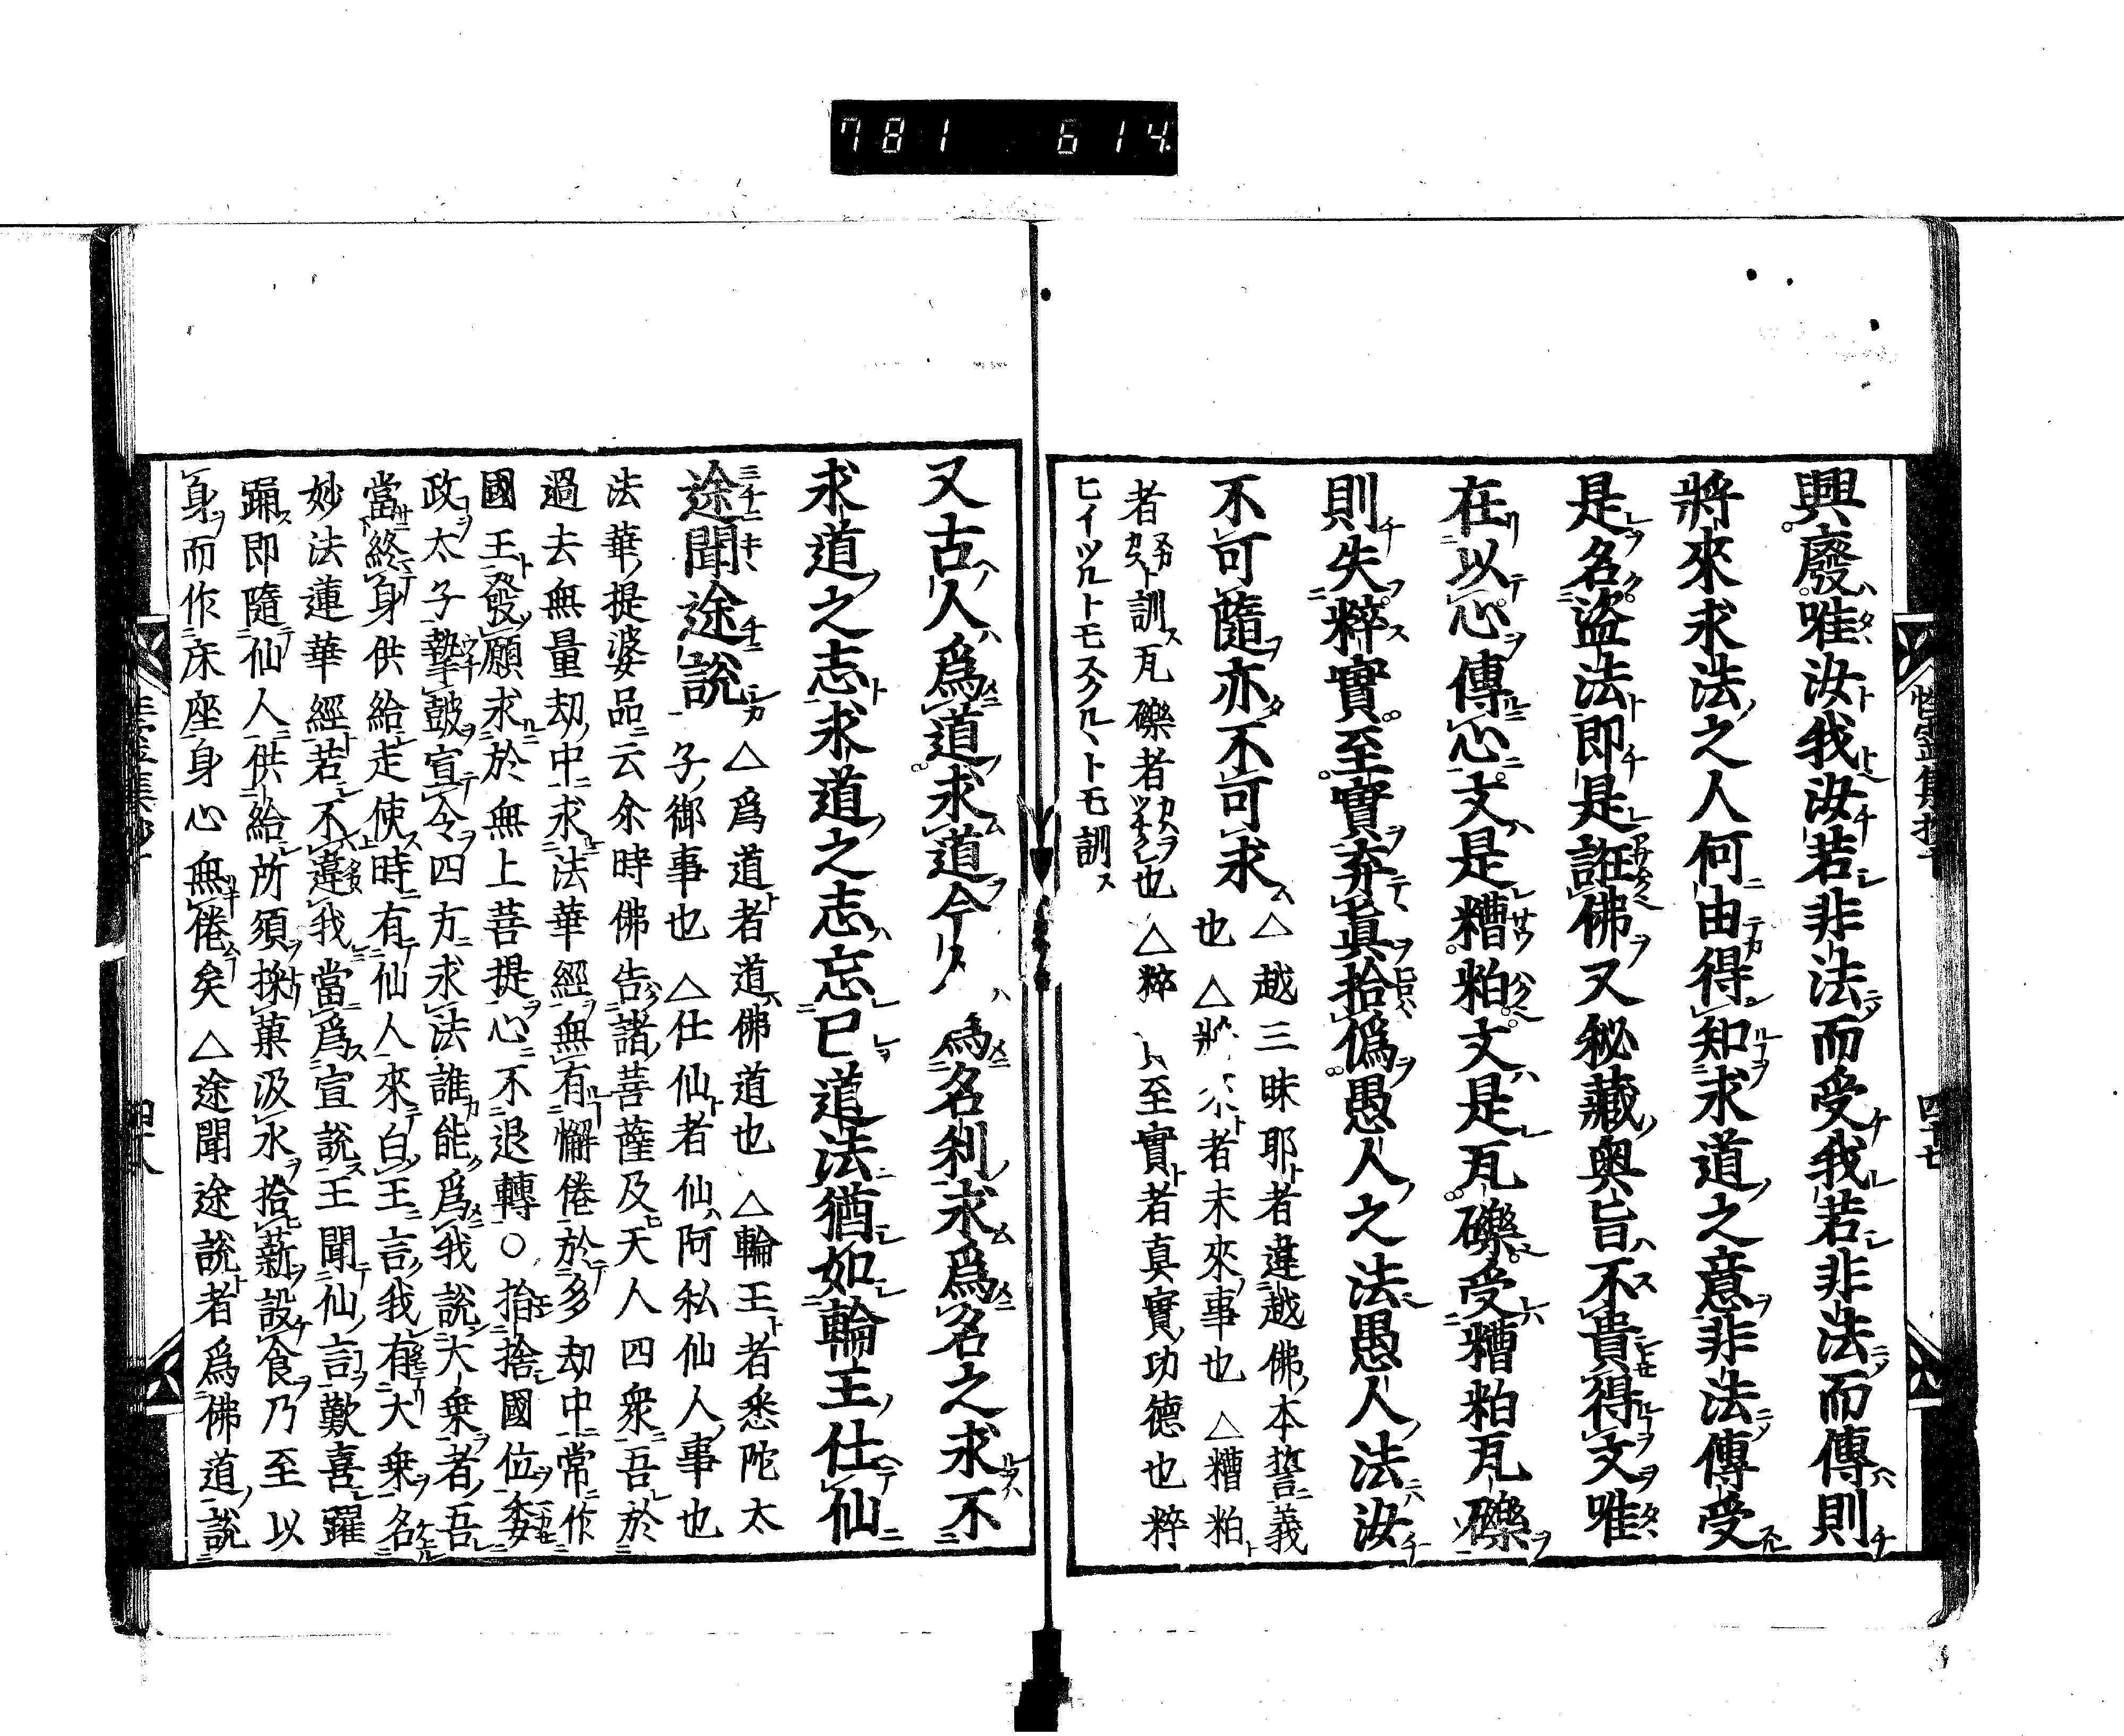 781 614
興廢唯汝我汝若非法而受我若非法而傳則
將來求法之人何由得知求道之意非法傳受
是名盜法即是誑佛又秘藏奥旨不貴得文唯
在以心傳心文是糟粕文是瓦礫受糟粕瓦礫
則失粹實至實弃眞拾僞愚人之法愚人法汝
不可隨亦不可求
△越三昧耶者違越佛本誓義
也△將來者未來事也△糟粕
者訓瓦礫者也△粹 至實者真實功德也粹
ヒイツルトモスクルヽトモ訓ス
四十七
又古人爲道求道今人爲名利求爲名之求不
求道之志求道之志忘已道法猶如輪王仕仙
途聞途説
△爲道者道佛道也△輪王者悉陀太
子御事也△仕仙者仙阿私仙人事也
法華提婆品云尒時佛告諸菩薩及天人四衆吾於
過去無量劫中求法華經無有懈倦於多劫中常作
國王發願求於無上菩提心不退轉○捨國位委
政太子擊皷宣令四方求法誰能爲我説大乗者吾
當終身供給走使時有仙人來白王言我有大乗名
妙法蓮華經若不違我當爲宣説王聞仙言歡喜躍
踊即隨仙人供給所須採菓汲水拾薪設食乃至以
身而作床座身心無倦矣△途聞途説者爲佛道説